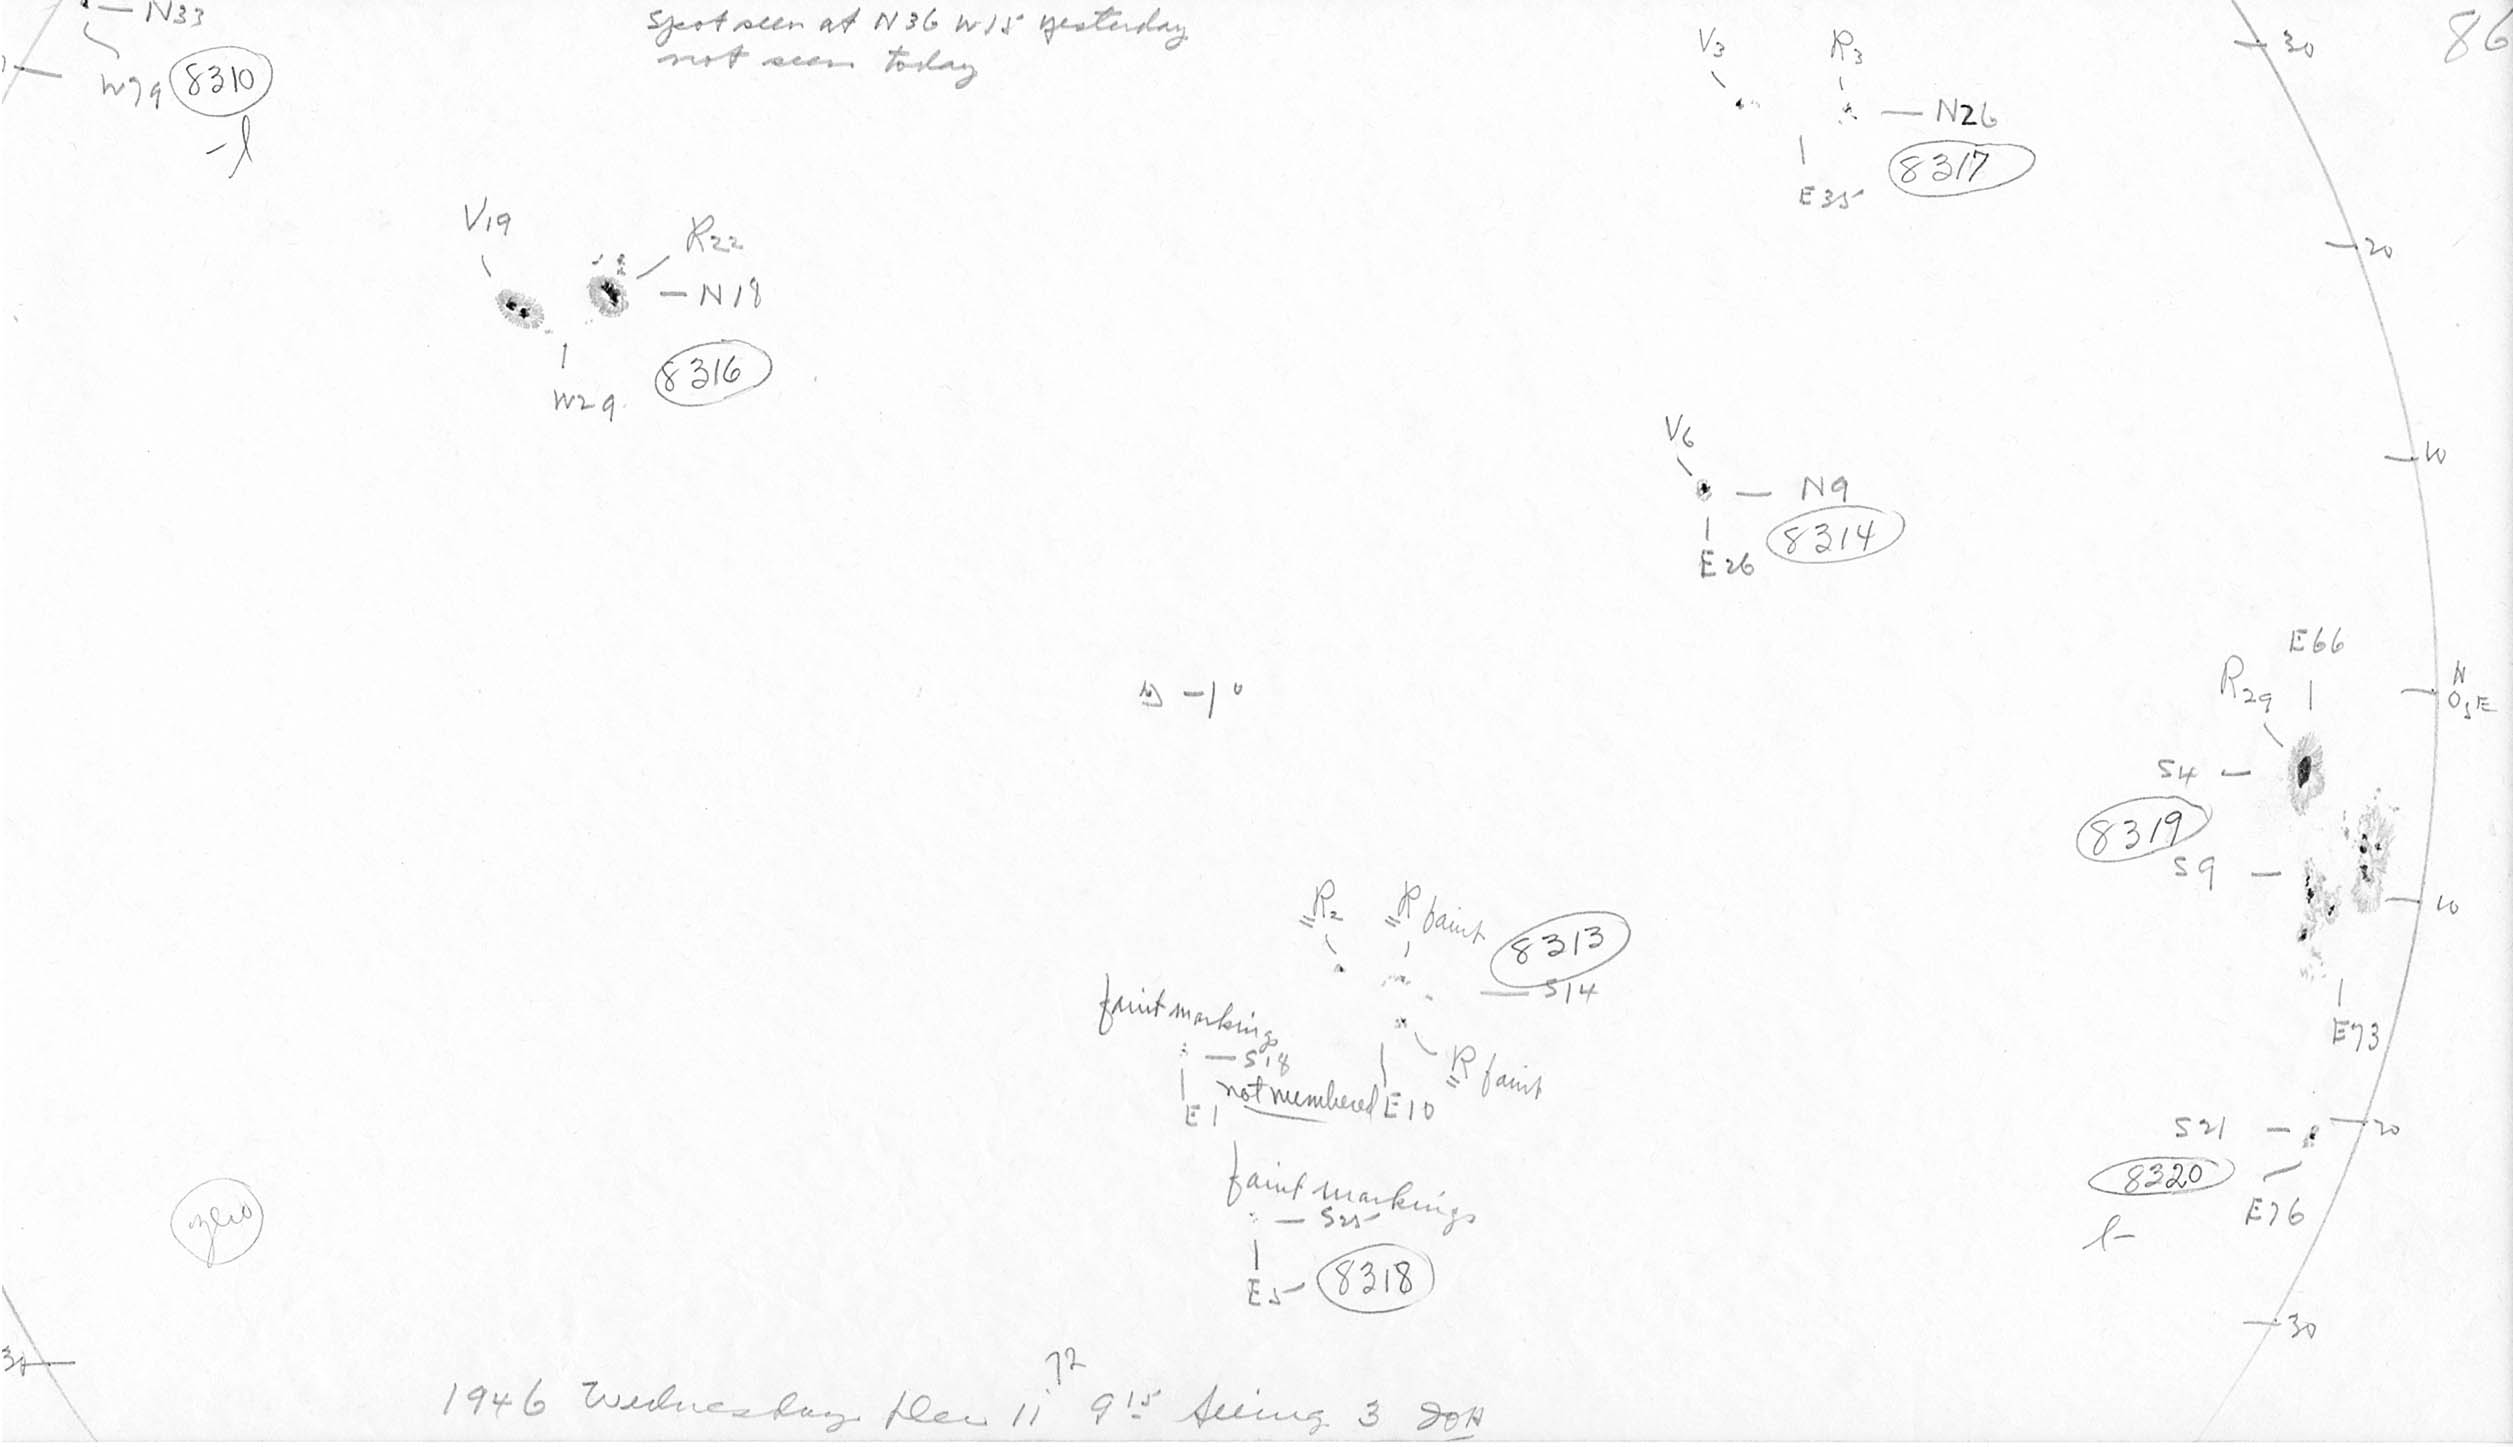 N33
W79 8310
-l
spot seen at N36 W15 yesterday
not seen today
V3 R3
N26
8317
E35
30
86
V19
R22
N18
8316
W29
20
V6
N9
8314
E26
10
-1°
E66
R29
N
0 E
S
S4
8319
S9
10
E73
R2
R faint
8313
S14
faint markings
S18
E1
not numbered
E10
R faint
S21
20
8320
E76
l-
faint markings
S25
E5
8318
zero
30
30
72
1946 Wednesday Dec 11 9 15 Seeing 3